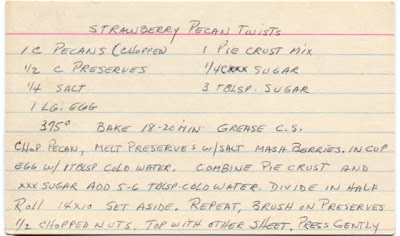 STRAWBERRY PECAN TWISTS
1 C PECANS (CHOPPED 1 PIE CRUST MIX
1/2 C PRESERVES 1/4C XXX SUGAR
1/4 SALT 3 TBLSP. SUGAR
1 LG. EGG
375° BAKE 18-20 MIN GREASE C.S.
CHOP PECAN, MELT PRESERVES W/SALT MASH BERRIES. IN CUP
EGG W/ 1 TBLSP COLD WATER. COMBINE PIE CRUST AND
XXX SUGAR ADD 5-6 TBLSP COLD WATER. DIVIDE IN HALF
ROLL 14X10 SET ASIDE. REPEAT, BRUSH ON PRESERVES
1/2 CHOPPED NUTS. TOP WITH OTHER SHEET. PRESS GENTLY